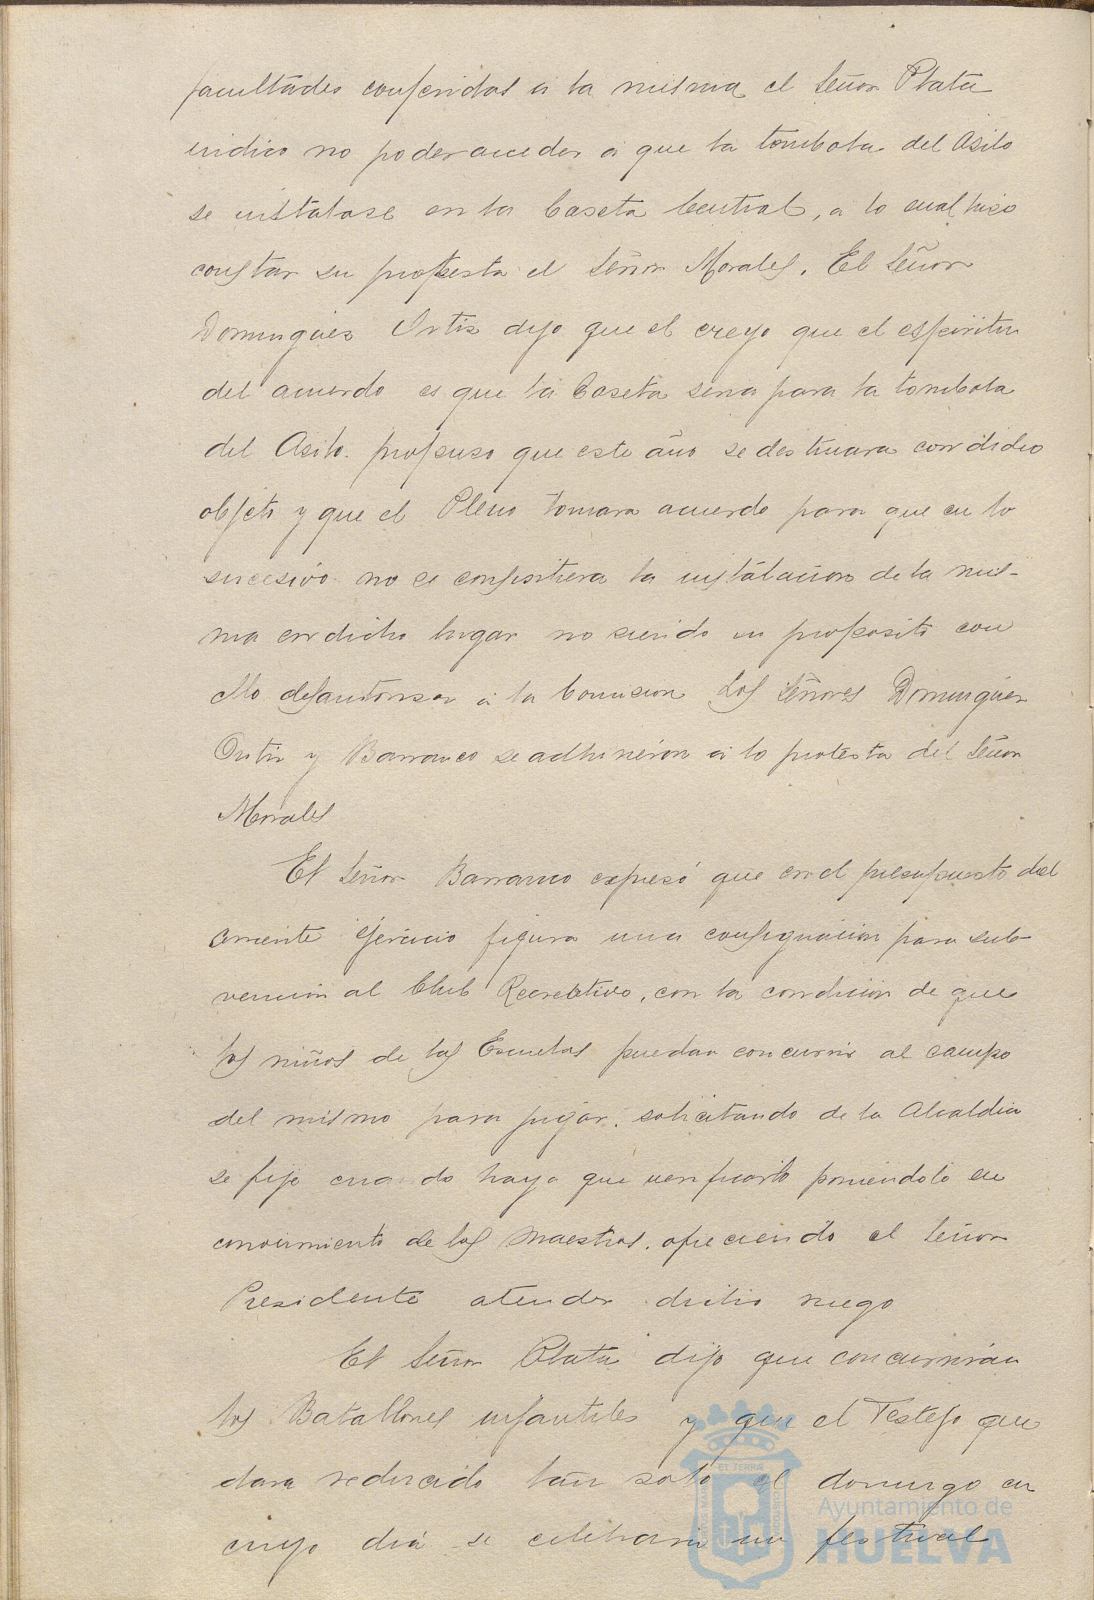 facultades conferidas a la misma el Señor Plata
indico no poder acceder a que la tombola del Asilo
se instalase en la Caseta Central, a lo cual hizo
constar su protesta el Señor Morales. El Señor
Dominguez Ortiz dijo que el creyo que el espiritu
del acuerdo es que la Caseta sera para la tombola
del Asilo. propuso que este año se destinara con dicho
objeto y que el Pleno tomara acuerdo para que en lo
sucesivo no se consintiera la instalacion de la mis-
ma en dicho lugar no siendo su proposito con
ello desautorizar a la Comision Los Señores Dominguez
Ortiz y Barranco se adhirieron a la protesta del Señor
Morales
El Señor Barranco expresó que en el presupuesto del
corriente ejercicio figura una consignacion para sub-
vencion al Club Recreativo, con la condicion de que
los niños de las Escuelas puedan concurrir al campo
del mismo para jugar, solicitando de la Alcaldia
se fije cuando haya que verificarlo poniendolo en
conocimiento de los Maestros. ofreciendo el Señor
Presidente atender dicho ruego
El Señor Plata dijo que concurriran
los Batallones infantiles y que el Festejo que
dara reducido tan solo al domingo en
cuyo dia se celebrara un festival
Ayuntamiento de
HUELVA